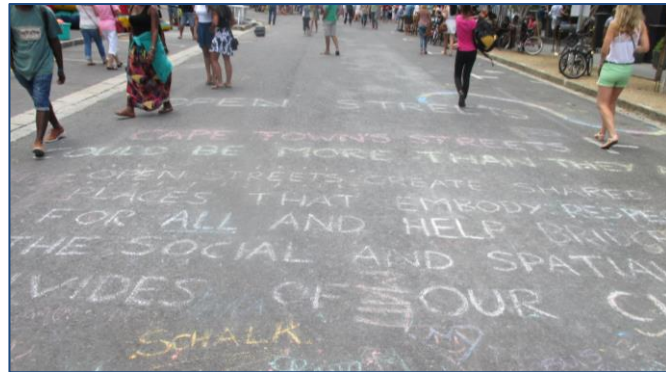 OPEN STREETS
CAPE TOWN'S STREETS
OULD BE MORE THAN THEY
OPEN TREETS CREATE SHARED
PLACES THAT EMBODY RESPE
FOR ALL AND HELP BRIDG
THE SOCIAL AND SPATIAL
VIDES OF OUR CI
SCHALK